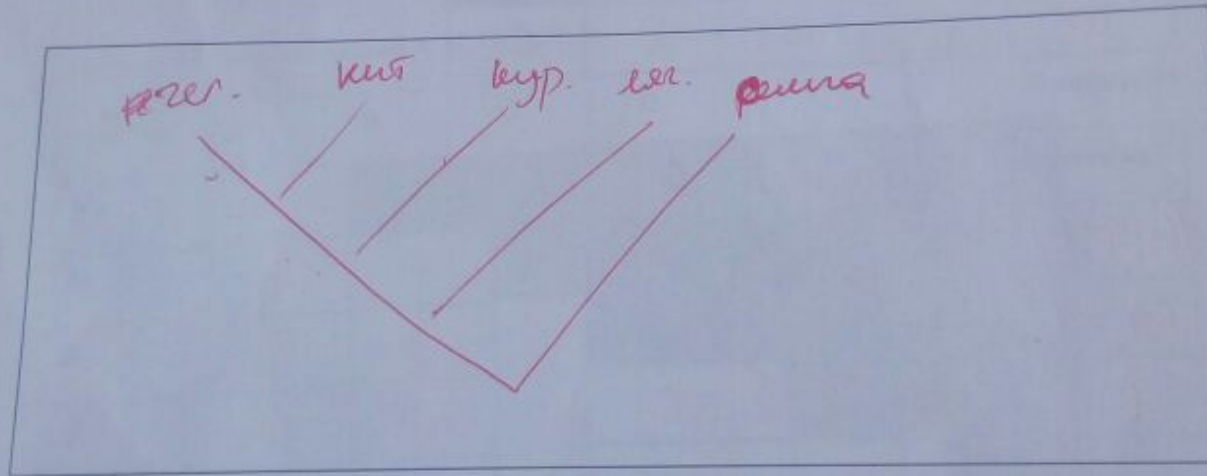 чел. кит кур. ляг. рыба